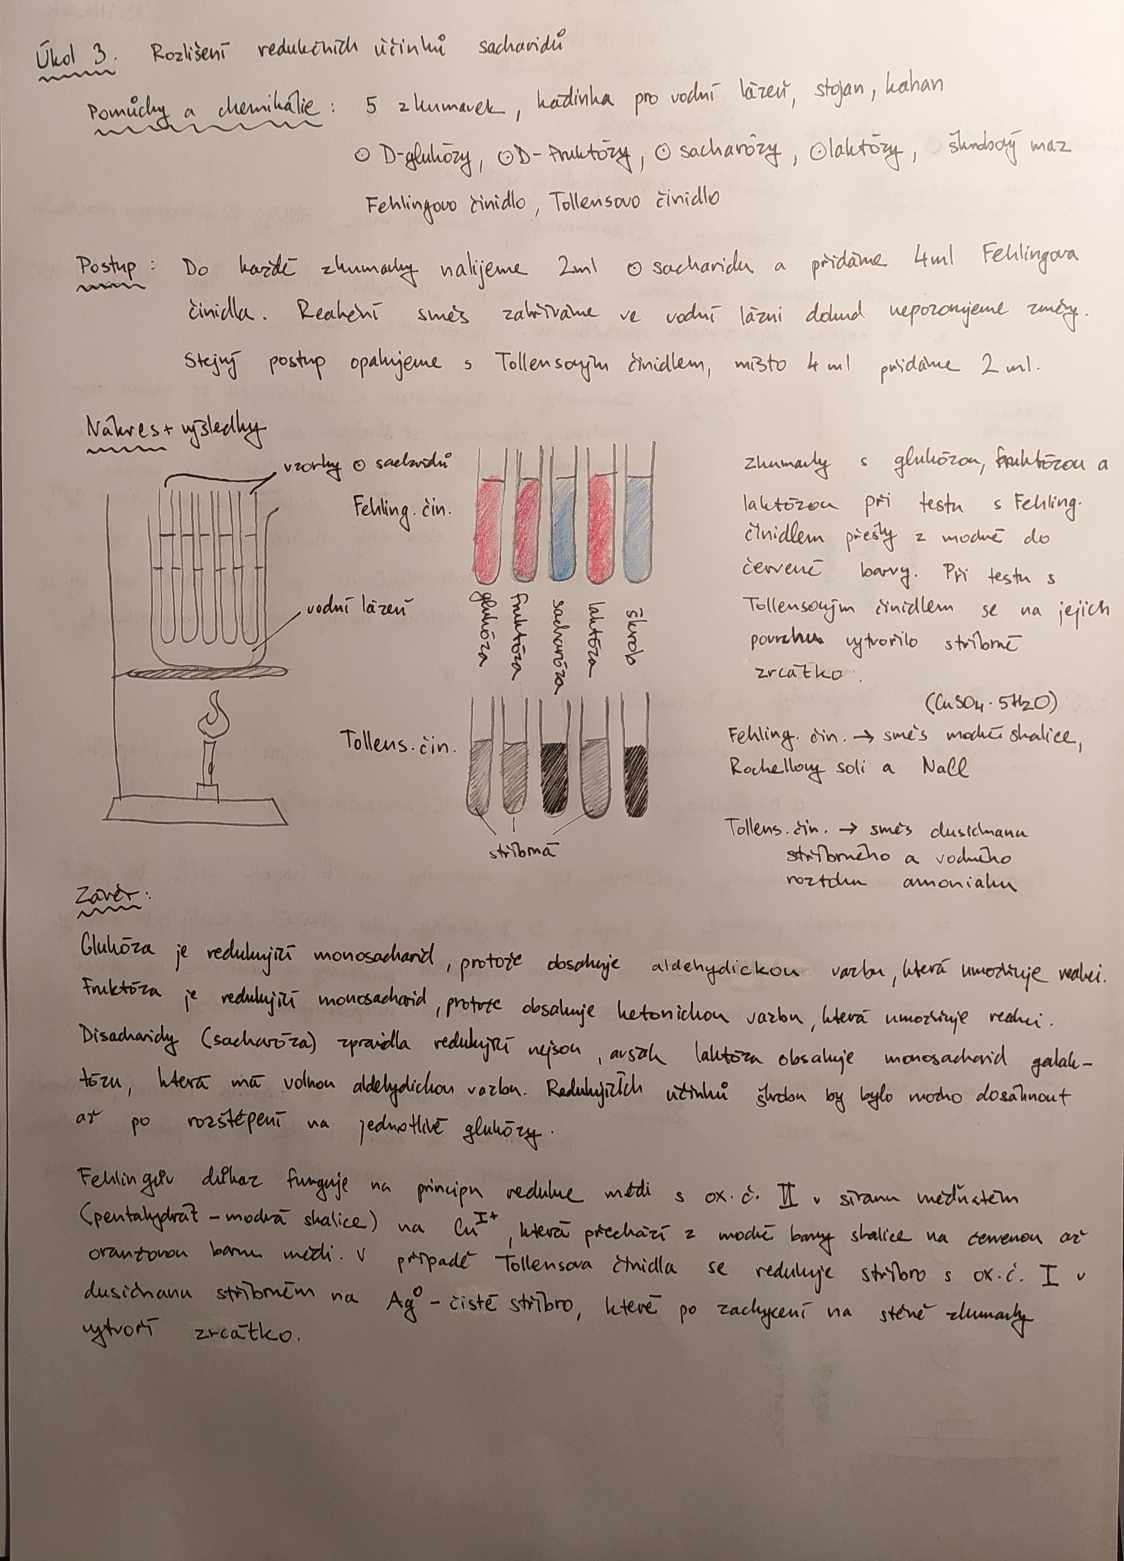 Úkol 3. Rozlišení redukčních účinků sacharidů
Pomůcky a chemikálie : 5 zkumavek, kádinka pro vodní lázeň, stojan, kahan
⊙ D-glukózy, ⊙ D-Fruktózy, ⊙ sacharózy, ⊙ laktózy, škrobový maz
Fehlingovo činidlo, Tollensovo činidlo
Postup : Do každé zkumavky nalijeme 2ml ⊙ sacharidu a přidáme 4ml Fehlingova
činidla. Reakční směs zahříváme ve vodní lázni dokud nepozorujeme změny.
Stejný postup opakujeme s Tollensovým činidlem, místo 4ml přidáme 2ml.
Nákres + výsledky
vzorky ⊙ sacharidů
vodní lázeň
Fehling. čin.
glukóza
fruktóza
sacharóza
laktóza
škrob
Tollens. čin.
stříbrná
zkumavky s glukózou, fruktózou a
laktózou při testu s Fehling.
činidlem přešly z modré do
červené barvy. Při testu s
Tollensovým činidlem se na jejich
povrchu vytvořilo stříbrné
zrcátko.
(CuSO4 · 5H2O)
Fehling. čin. → směs modré skalice,
Rochellovy soli a NaCl
Tollens. čin. → směs dusičnanu
stříbrného a vodného
roztoku amoniaku
Závěr :
Glukóza je redukující monosacharid, protože obsahuje aldehydickou vazbu, která umožňuje reakci.
Fruktóza je redukující monosacharid, protože obsahuje ketonickou vazbu, která umožňuje reakci.
Disacharidy (sacharóza) zpravidla redukující nejsou, avšak laktóza obsahuje monosacharid galak-
tózu, která má volnou aldehydickou vazbu. Redukujících účinků škrobu by bylo možno dosáhnout
až po rozštěpení na jednotlivé glukózy.
Fehlingův důkaz funguje na principu redukce mědi s ox.č. II v síranu měďnatém
(pentahydrát - modrá skalice) na Cu^I+, která přechází z modré barvy skalice na červenou až
oranžovou barvu mědi. V případě Tollensova činidla se redukuje stříbro s ox.č. I v
dusičnanu stříbrném na Ag^0 - čisté stříbro, které po zachycení na stěně zkumavky
vytvoří zrcátko.